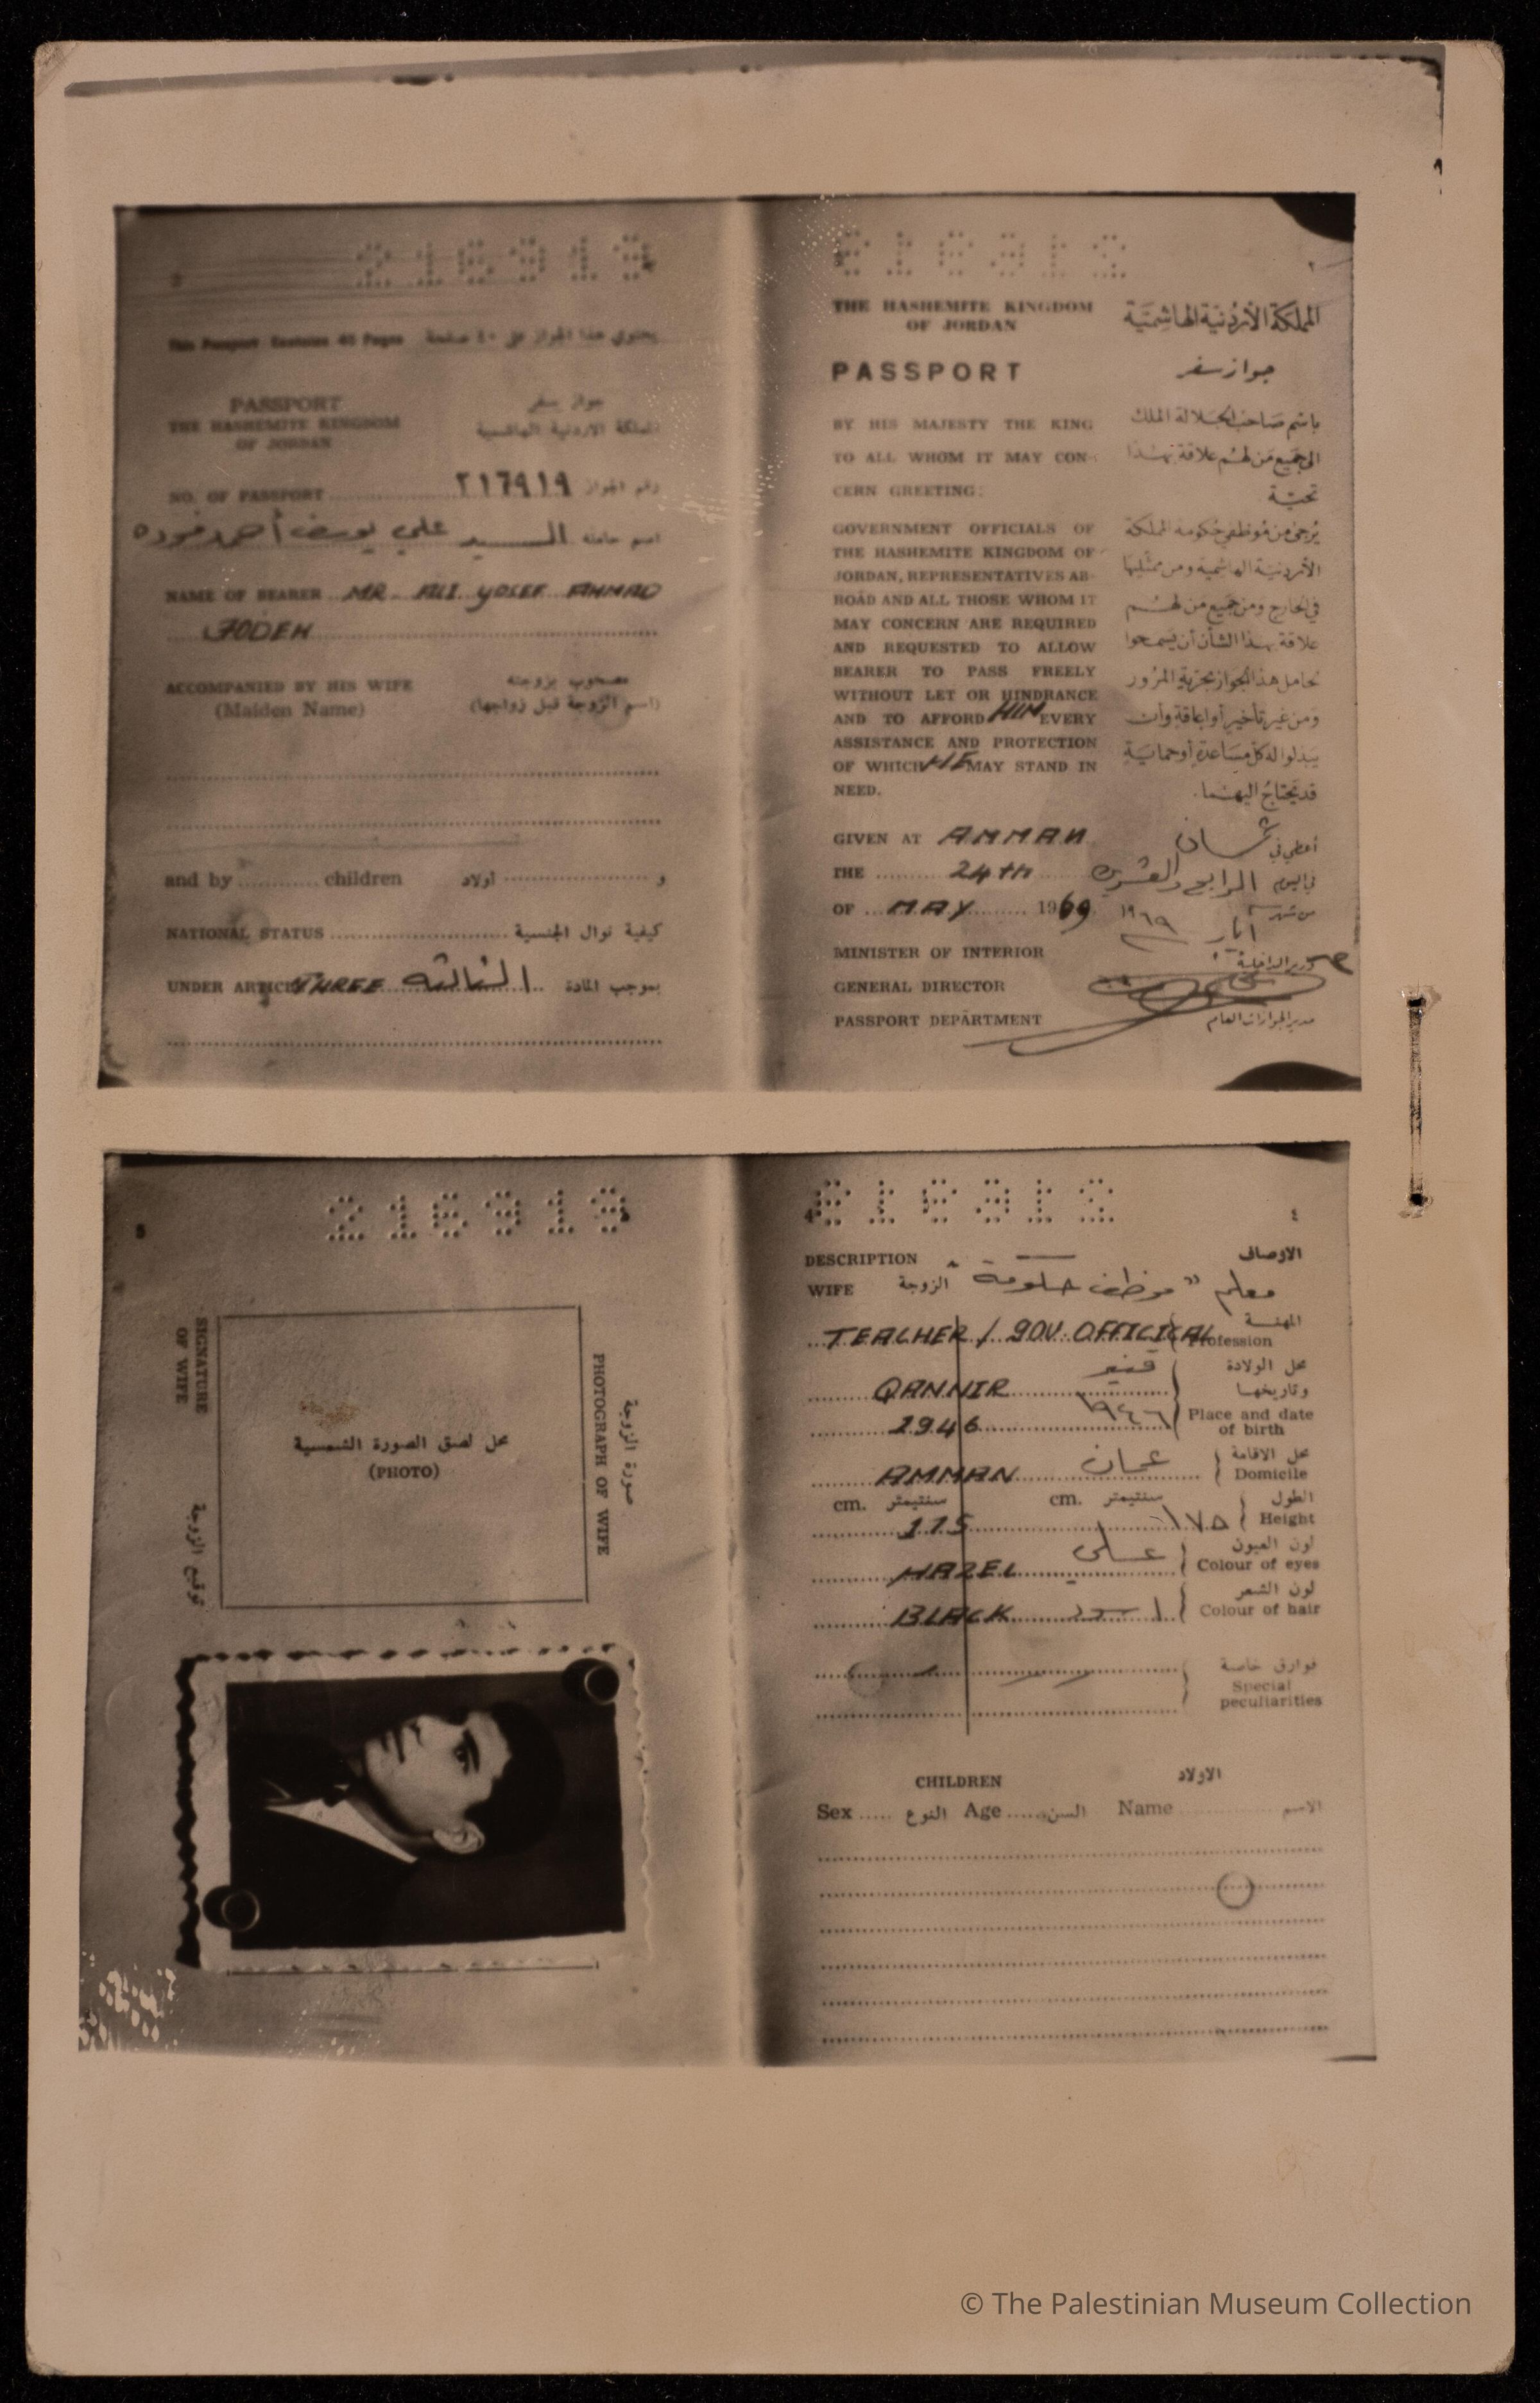 216919
This Passport Contains 40 Pages يحتوي هذا الجواز على ٤٠ صفحة
PASSPORT جواز سفر
THE HASHEMITE KINGDOM المملكة الاردنية الهاشمية
OF JORDAN
NO. OF PASSPORT ٢١٦٩١٩ رقم الجواز
اسم حامله السيد علي يوسف أحمد عوده
NAME OF BEARER MR. ALI YOSEF AHMAD
JODEH
ACCOMPANIED BY HIS WIFE مصحوب بزوجته
(Maiden Name) (اسم الزوجة قبل زواجها)
and by children اولاد و
NATIONAL STATUS كيفية نوال الجنسية
UNDER ARTICLE THREE الثالثة بموجب المادة
216919
٢
THE HASHEMITE KINGDOM
OF JORDAN
المملكة الأردنية الهاشمية
PASSPORT جواز سفر
BY HIS MAJESTY THE KING
TO ALL WHOM IT MAY CON-
CERN GREETING:
GOVERNMENT OFFICIALS OF
THE HASHEMITE KINGDOM OF
JORDAN, REPRESENTATIVES AB-
ROAD AND ALL THOSE WHOM IT
MAY CONCERN ARE REQUIRED
AND REQUESTED TO ALLOW
BEARER TO PASS FREELY
WITHOUT LET OR HINDRANCE
AND TO AFFORD HIM EVERY
ASSISTANCE AND PROTECTION
OF WHICH HE MAY STAND IN
NEED.
باسم صاحب الجلالة الملك
الى جميع من لهم علاقة بهذا
تحية
يرجى من موظفي حكومة المملكة
الأردنية الهاشمية ومن ممثليها
في الخارج ومن جميع من لهم
علاقة بهذا الشأن أن يسمحوا
لحامل هذا الجواز بحرية المرور
ومن غير تأخير أو اعاقة وأن
يبذلوا له كل مساعدة أو حماية
قد يحتاج اليهما.
GIVEN AT AMMAN أعطي في عمان
THE 24TH في اليوم الرابع والعشرين
OF MAY 1969 ١٩٦٩ من شهر أيار
MINISTER OF INTERIOR وزير الداخلية
GENERAL DIRECTOR
PASSPORT DEPARTMENT مدير الجوازات العام
216919
SIGNATURE
OF WIFE
توقيع الزوجة
محل لصق الصورة الشمسية
(PHOTO)
PHOTOGRAPH OF WIFE
صورة الزوجة
216919
4 ٤
DESCRIPTION الاوصاف
WIFE الزوجة معلم " موظف حكومة "
TEACHER / GOV. OFFICICAL المهنة Profession
QANNIR قنير محل الولادة
وتاريخها
1946 ١٩٤٦ Place and date
of birth
AMMAN عمان محل الاقامة
Domicile
cm. سنتيمتر cm. سنتيمتر الطول
175 ١٧٥ Height
HAZEL عسلي لون العيون
Colour of eyes
BLACK اسود لون الشعر
Colour of hair
فوارق خاصة
Special
peculiarities
CHILDREN الاولاد
Sex النوع Age السن Name الاسم
© The Palestinian Museum Collection